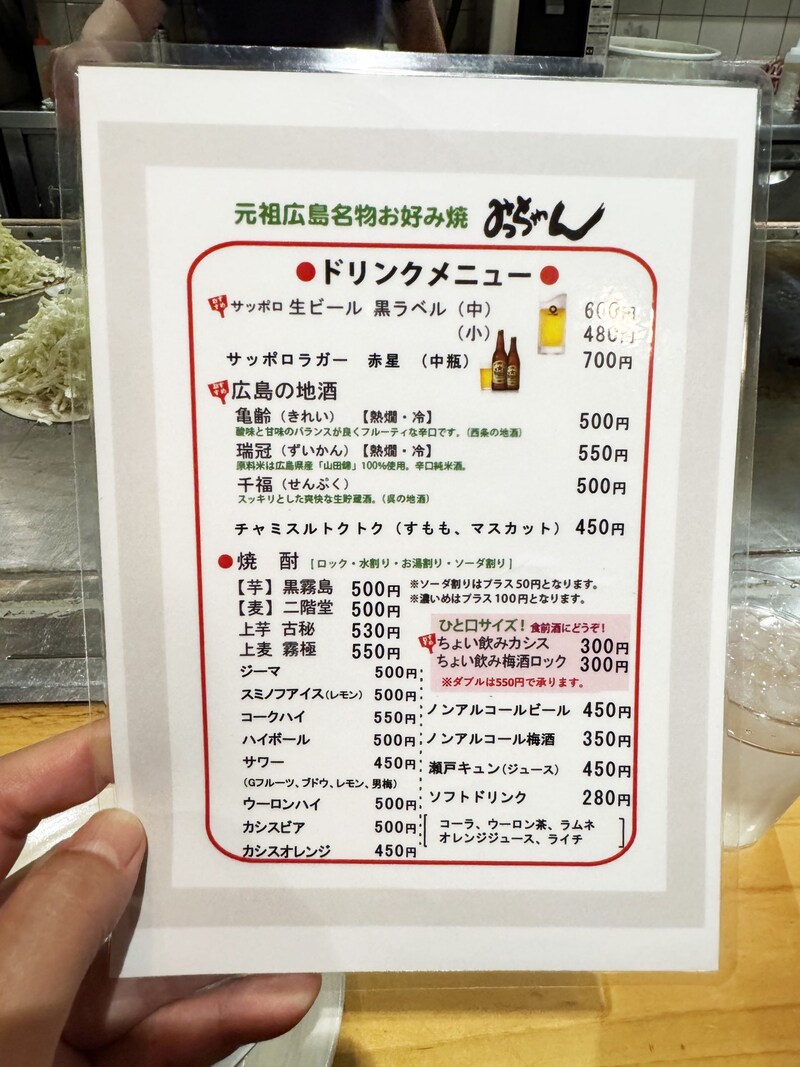 元祖広島名物お好み焼 みっちゃん
●ドリンクメニュー●
おすすめ サッポロ 生ビール 黒ラベル（中） 600円
（小） 480円
サッポロラガー 赤星 （中瓶） 700円
おすすめ 広島の地酒
亀齢（きれい） 【熱燗・冷】 500円
酸味と甘味のバランスが良くフルーティな辛口です。（西条の地酒）
瑞冠（ずいかん）【熱燗・冷】 550円
原料米は広島県産「山田錦」100%使用。辛口純米酒。
千福（せんぷく） 500円
スッキリとした爽快な生貯蔵酒。（呉の地酒）
チャミスルトクトク（すもも、マスカット） 450円
●焼 酎 [ロック・水割り・お湯割り・ソーダ割り]
【芋】黒霧島 500円
【麦】二階堂 500円
上芋 古秘 530円
上麦 霧極 550円
※ソーダ割りはプラス50円となります。
※濃いめはプラス100円となります。
ジーマ 500円
スミノフアイス（レモン） 500円
コークハイ 550円
ハイボール 500円
サワー 450円
（Gフルーツ、ブドウ、レモン、男梅）
ウーロンハイ 500円
カシスビア 500円
カシスオレンジ 450円
ひと口サイズ！ 食前酒にどうぞ！
おすすめ ちょい飲みカシス 300円
ちょい飲み梅酒ロック 300円
※ダブルは550円で承ります。
ノンアルコールビール 450円
ノンアルコール梅酒 350円
瀬戸キュン（ジュース） 450円
ソフトドリンク 280円
[コーラ、ウーロン茶、ラムネ
オレンジジュース、ライチ]